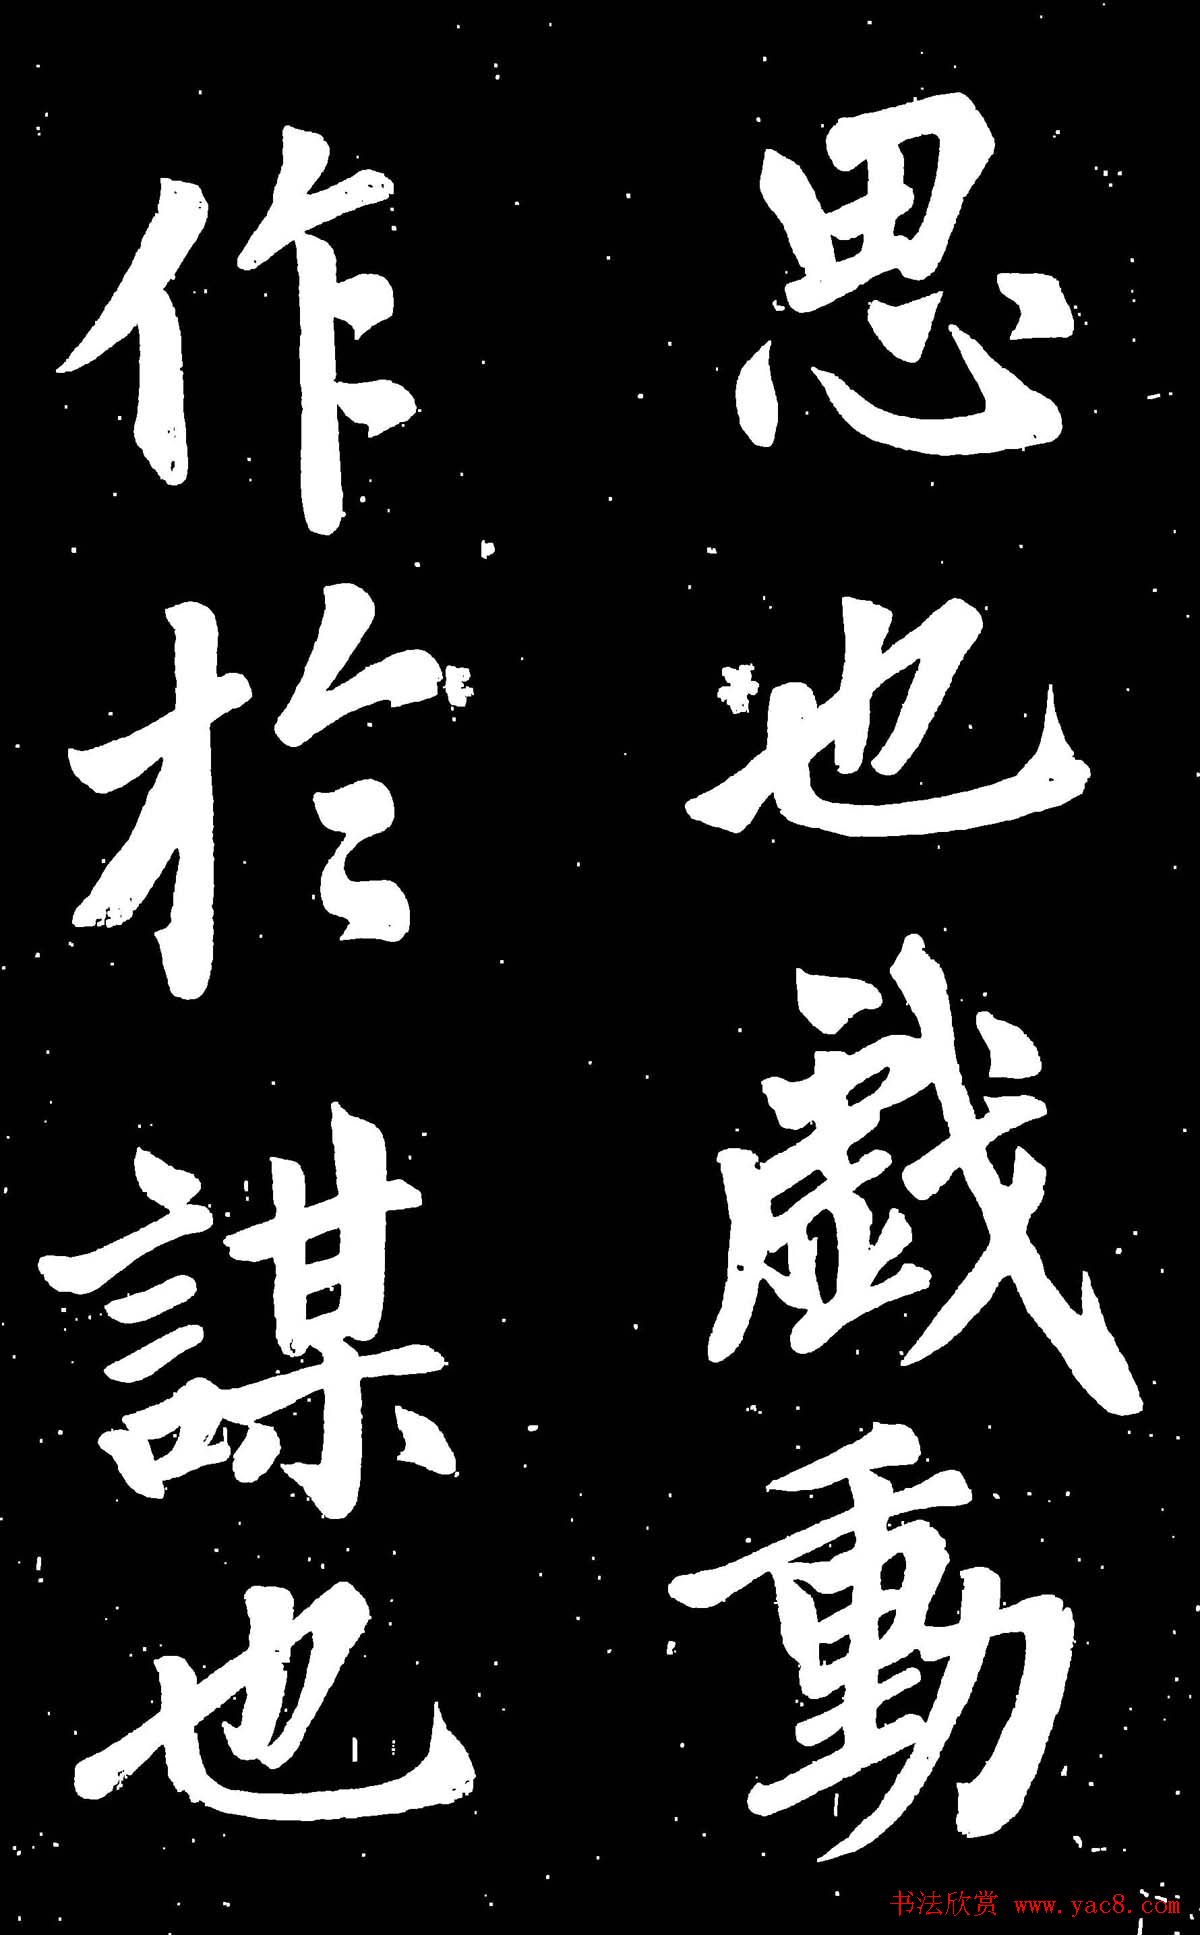 思也戲動
作於謀也
书法欣赏 www.yac8.com